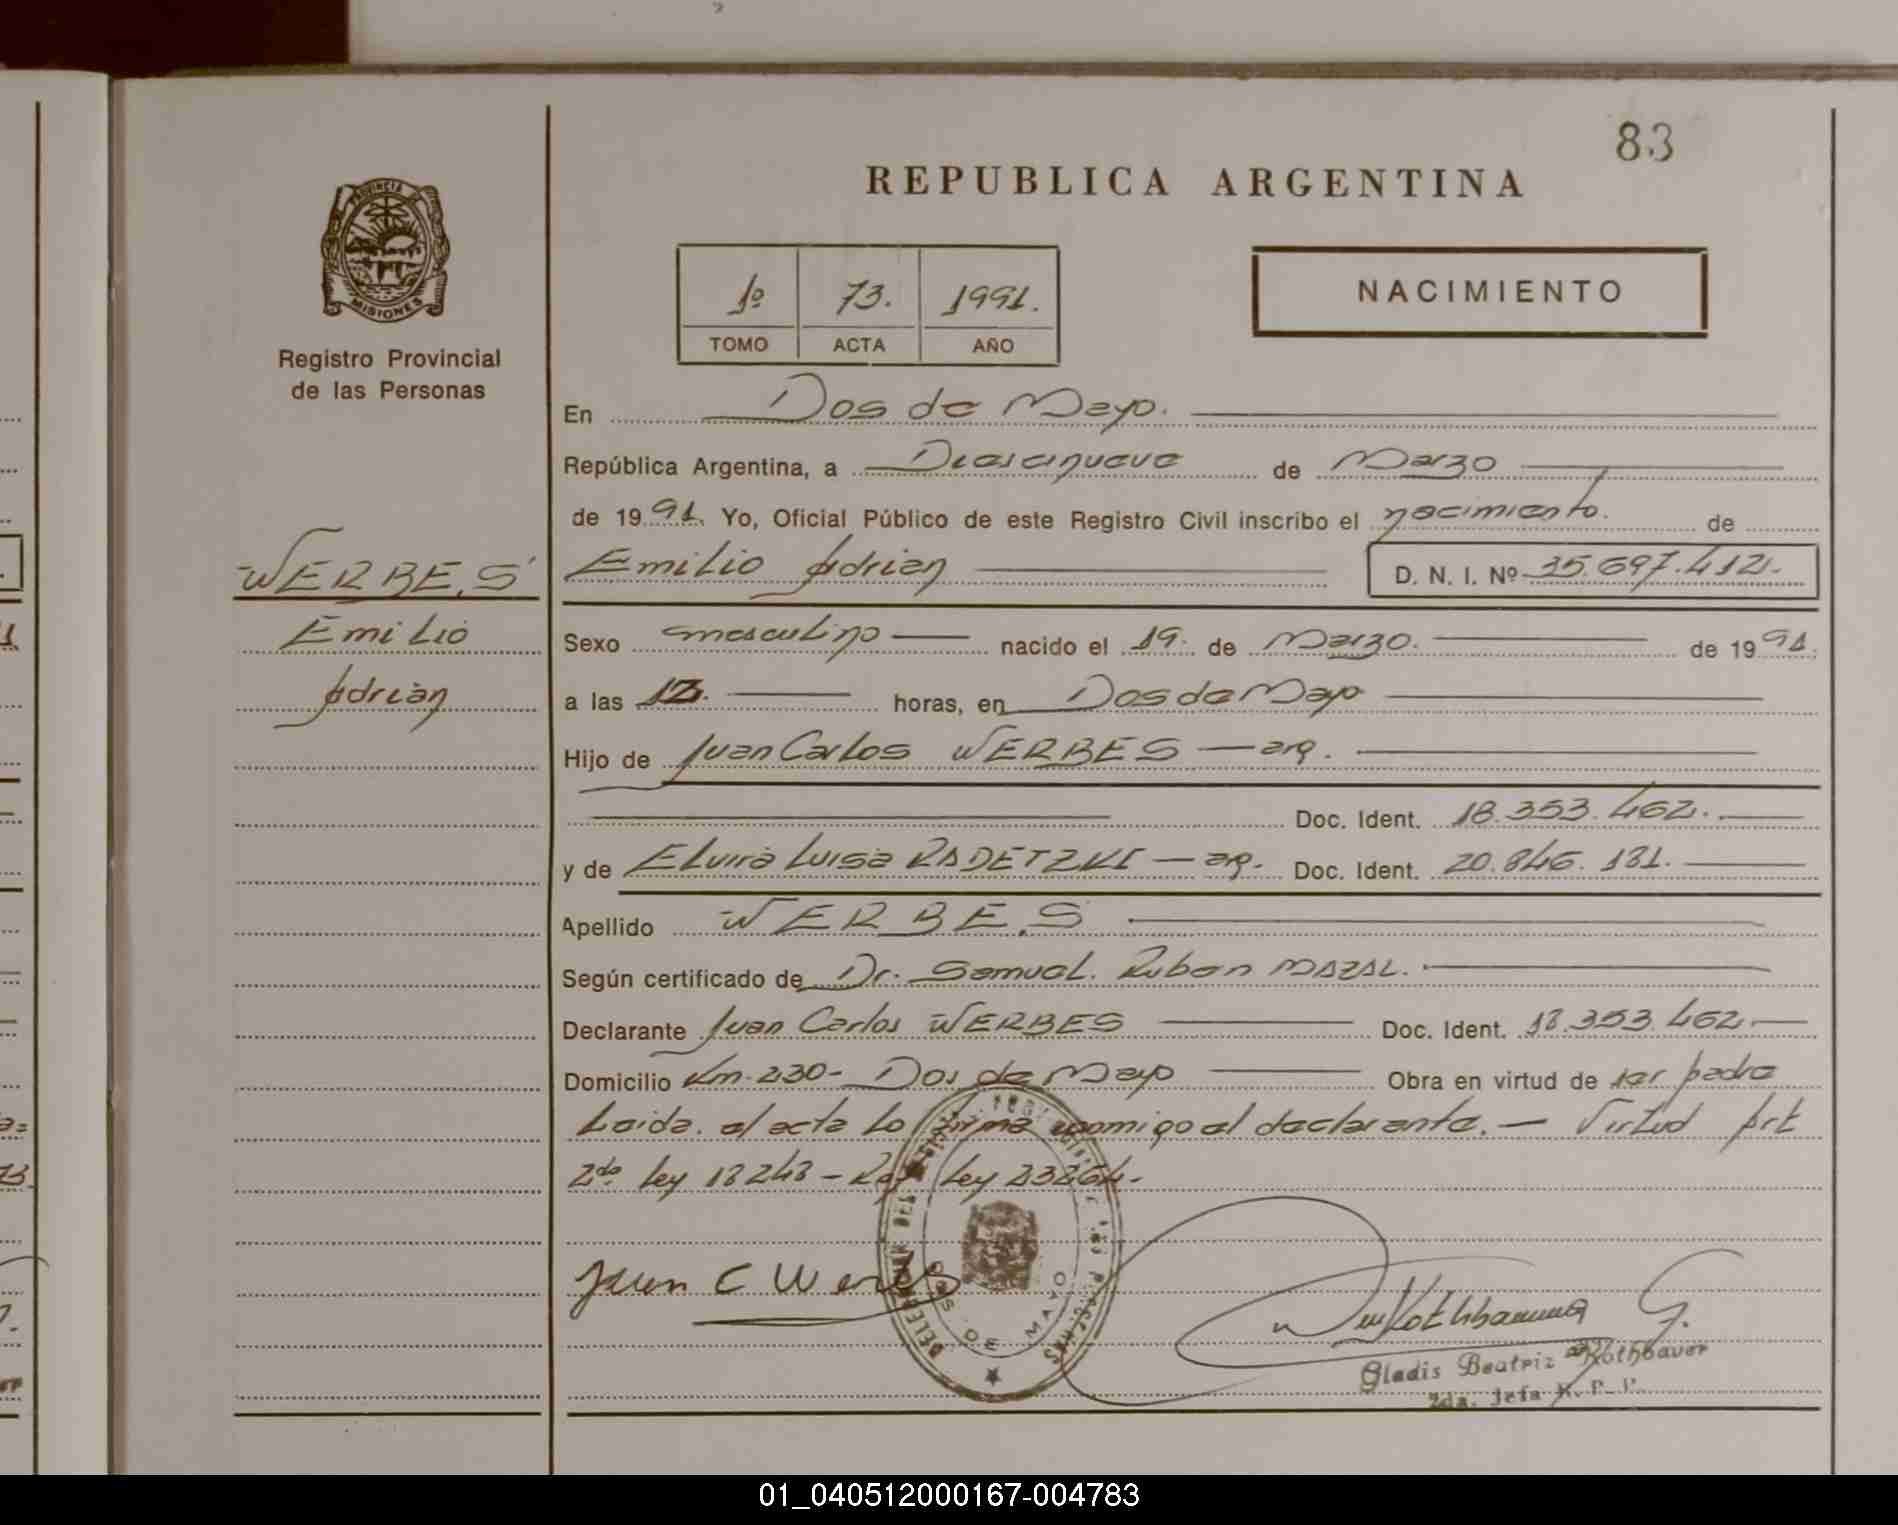 83
REPUBLICA ARGENTINA
PROVINCIA DE
MISIONES
Registro Provincial
de las Personas
1º 73. 1991.
TOMO ACTA AÑO
NACIMIENTO
WERBES
Emilio
Adrián
En Dos de Mayo.
República Argentina, a Diecinueve de Marzo
de 1991. Yo, Oficial Público de este Registro Civil inscribo el nacimiento. de
Emilio Adrian D. N. I. Nº 35.697.412.
Sexo masculino nacido el 19. de Marzo. de 1991.
a las horas, en Dos de Mayo
Hijo de Juan Carlos WERBES — arg.
Doc. Ident. 18.353.462.
y de Elvira Luisa RADETZKI — arg. Doc. Ident. 20.846.181.
Apellido WERBES
Según certificado de Dr. Samuel. Ruben MAZAL.
Declarante Juan Carlos WERBES Doc. Ident. 18.353.462
Domicilio Km. 230- Dos de Mayo Obra en virtud de ser padre
Leida. el acta lo firma conmigo el declarante. — Virtud Art
2do. Ley 18248 - Ley 23264.-
Juan C Werbes
DOS DE MAYO
Gladis Beatriz Rothbauer
2da. Jefa R. P. P.
01_040512000167-004783